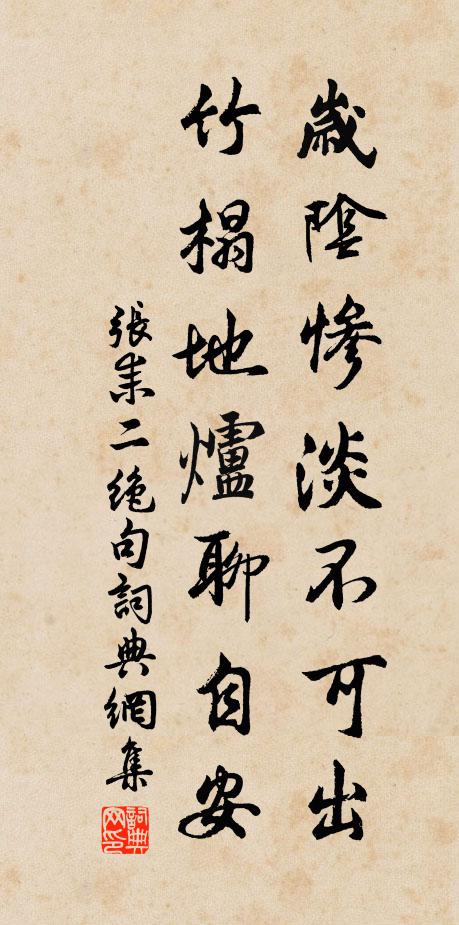 歲陰慘淡不可出
竹榻地爐聊自安
張耒二絕句詞典網集
詞典网印